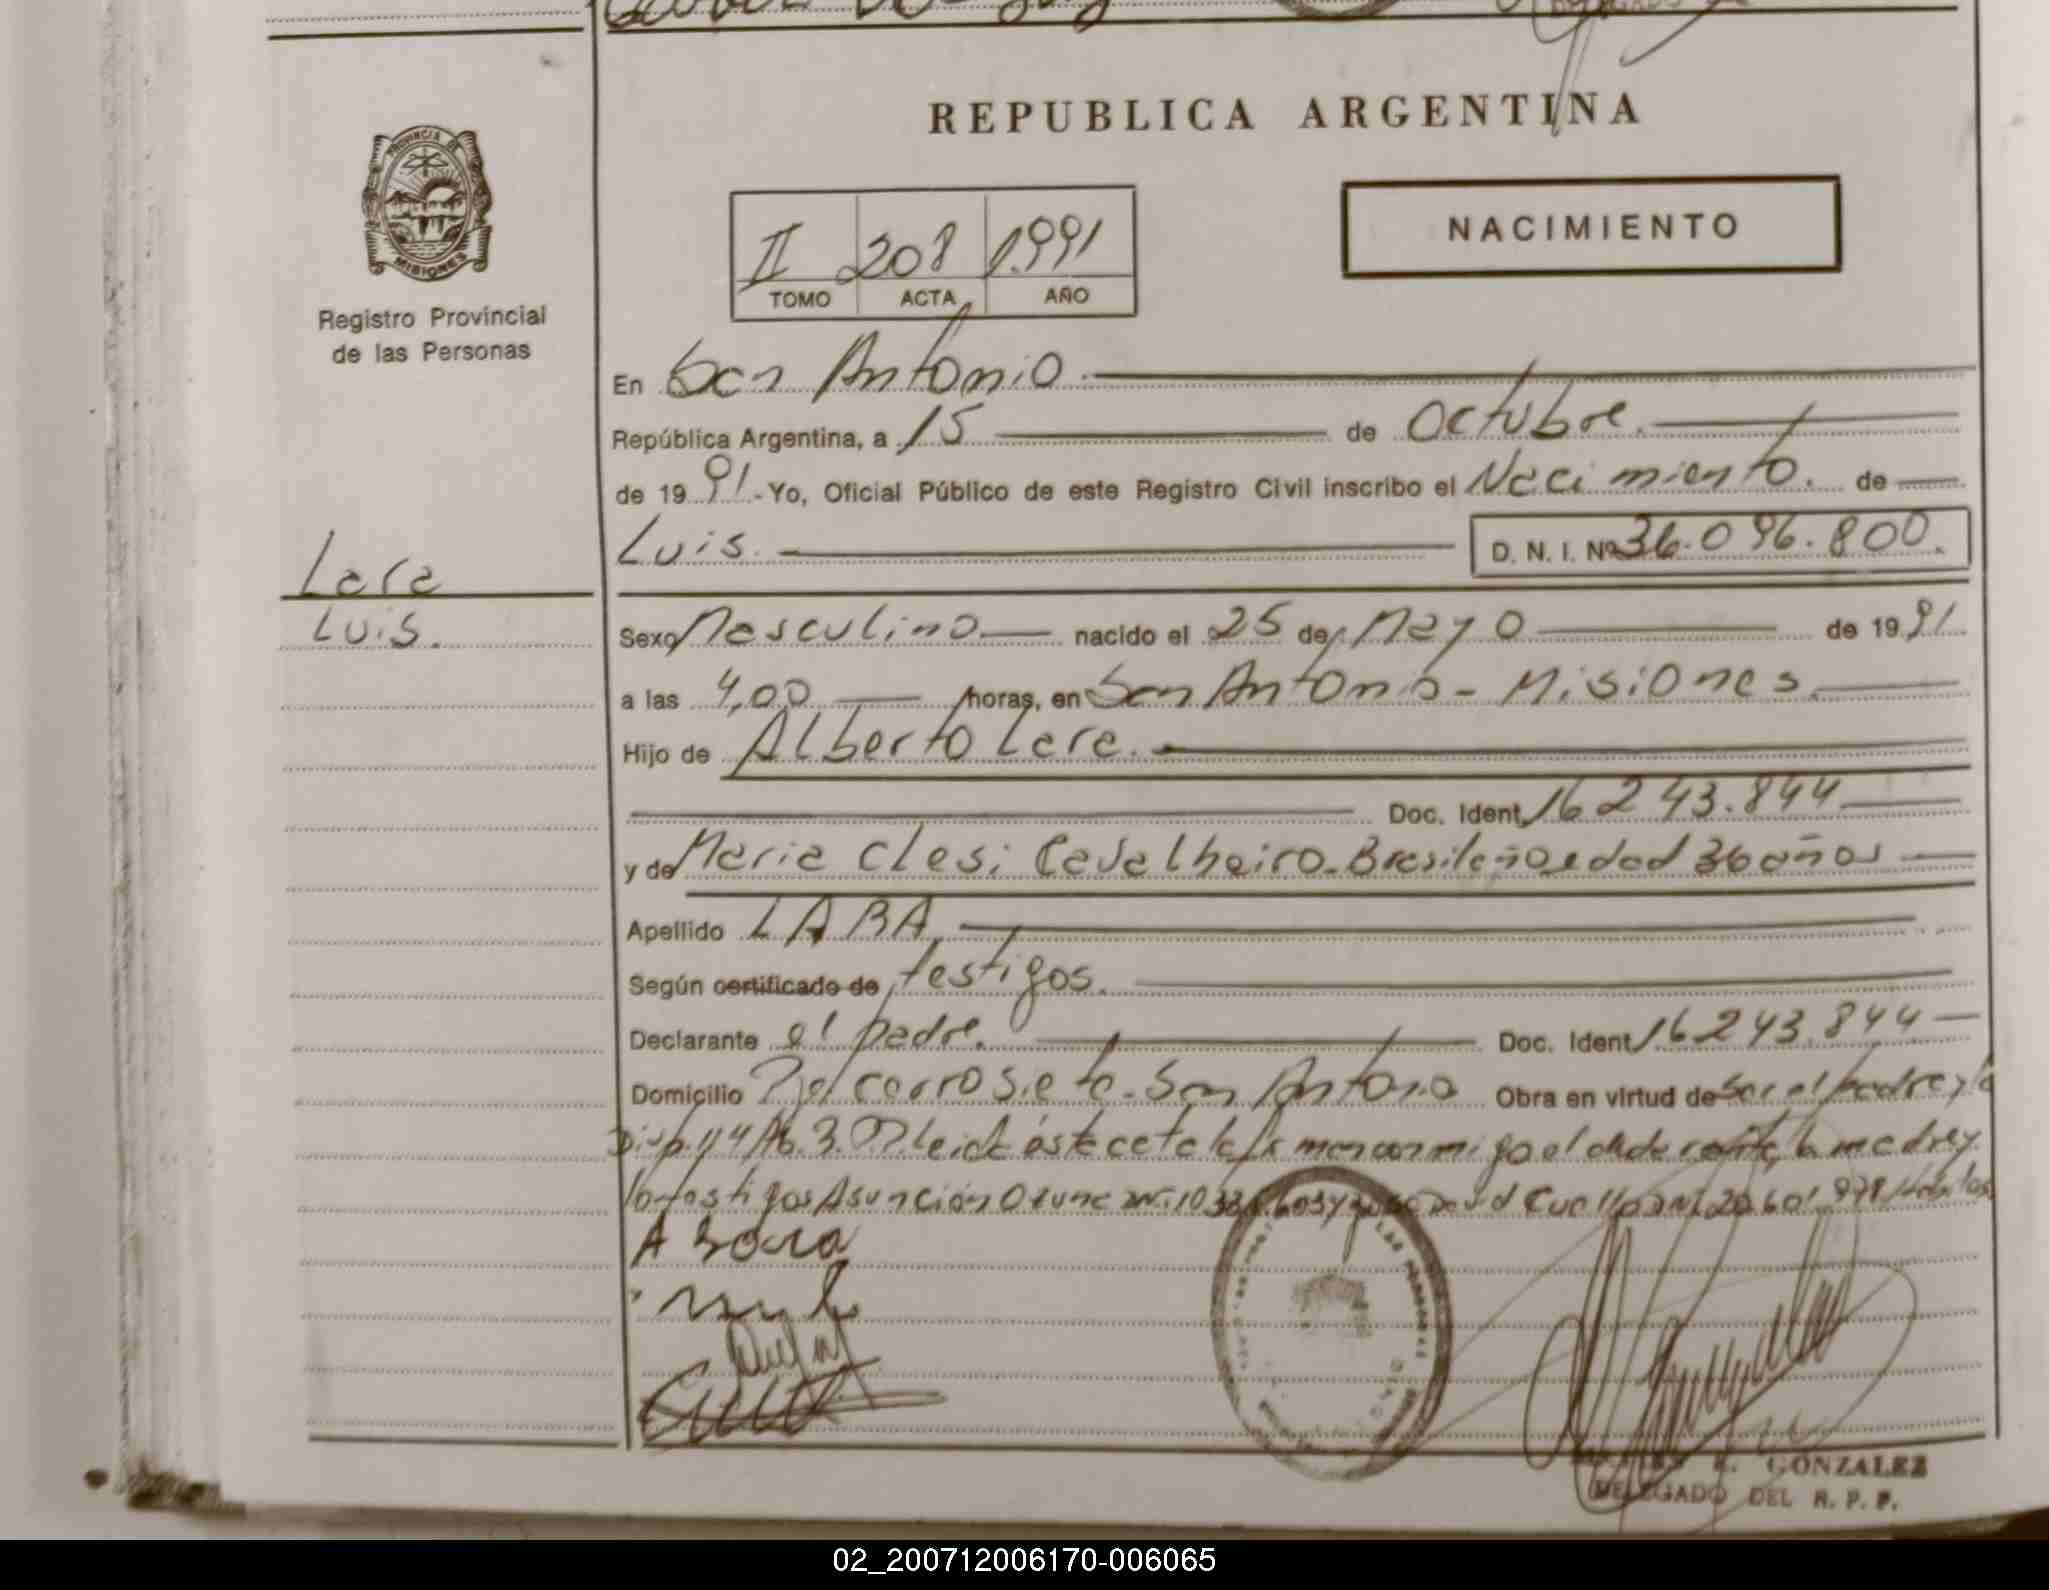 REPUBLICA ARGENTINA
PROVINCIA DE
MISIONES
Registro Provincial
de las Personas
II 208 1.991
TOMO ACTA AÑO
NACIMIENTO
En San Antonio.
República Argentina, a 15 de Octubre.
de 1991.- Yo, Oficial Público de este Registro Civil inscribo el Nacimiento. de
Luis. D. N. I. Nº 36.096.800.
Lara
Luis.
Sexo Masculino nacido el 25 de Mayo de 1991
a las 4,00 horas, en San Antonio - Misiones.
Hijo de Alberto Lara.
Doc. Ident. 16.243.844
y de Maria Clesi Cavalheiro - Brasileña edad 36 años
Apellido LARA
Según certificado de testigos.
Declarante el padre. Doc. Ident. 16.243.844
Domicilio San Antonio Obra en virtud de ser el padre y la
Leida éste acta la firman conmigo el declarante, la madre y
los testigos Asunción
GONZALEZ
DELEGADO DEL R. P. P.
02_200712006170-006065